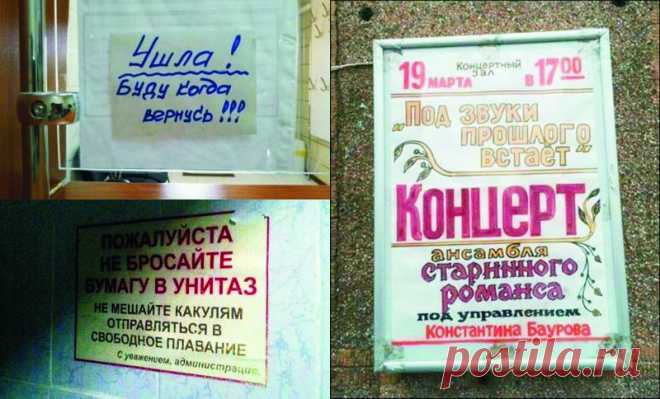 Ушла!
Буду когда
вернусь!!!
ПОЖАЛУЙСТА
НЕ БРОСАЙТЕ
БУМАГУ В УНИТАЗ
НЕ МЕШАЙТЕ КАКУЛЯМ
ОТПРАВЛЯТЬСЯ В
СВОБОДНОЕ ПЛАВАНИЕ
С уважением, администрация.
19 МАРТА Концертный зал в 17 00
"Под звуки
прошлого
встаёт"
Концерт
ансамбля
старинного
романса
под управлением
Константина Баурова
postila.ru